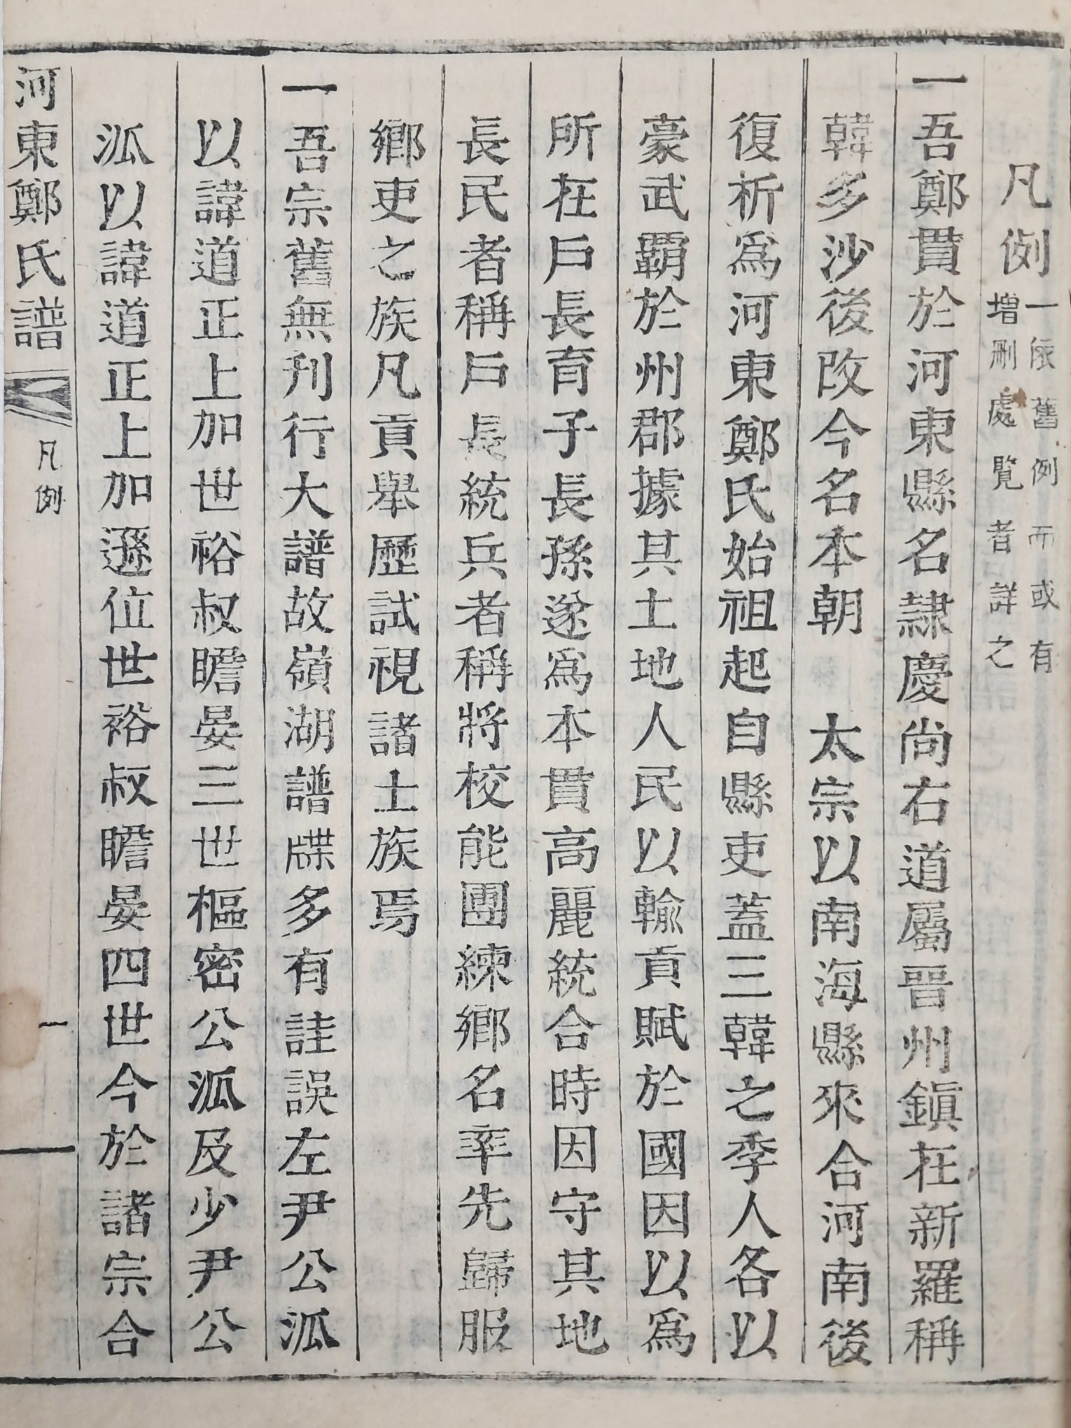 凡例一依舊例而或有
增刪處覽者詳之
一吾鄭貫於河東縣名隷慶尙右道屬晋州鎭在新羅稱
韓多沙後改今名本朝　太宗以南海縣來合河南後
復析爲河東鄭氏始祖起自縣吏蓋三韓之季人各以
豪武覇於州郡據其土地人民以輸貢賦於國因以爲
所在戶長育子長孫遂爲本貫高麗統合時因守其地
長民者稱戶長統兵者稱將校能團練鄕名率先歸服
鄕吏之族凡貢舉歷試視諸士族焉
一吾宗舊無刊行大譜故嶺湖譜牒多有註誤左尹公派
以諱道正上加世裕叔瞻晏三世樞密公派及少尹公
派以諱道正上加遜位世裕叔瞻晏四世今於諸宗合
河東鄭氏譜　凡例　一